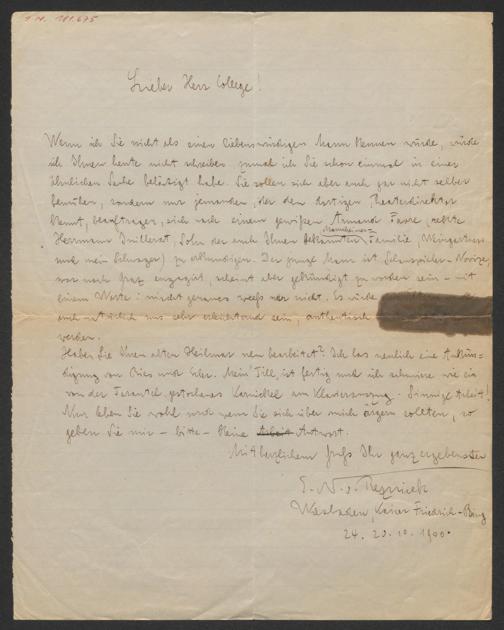 I.N. 181.675
Lieber Herr College!
Wenn ich Sie nicht als einen liebenswürdigen Mann kennen würde, würde
ich Ihnen heute nicht schreiben, zumal ich Sie schon einmal in einer
ähnlichen Sache belästigt habe. Sie sollen sich aber auch gar nicht selber
bemühen, sondern nur jemanden, der den dortigen Theaterdirektor
kennt, beauftragen, sich nach einem gewissen Armand
Herrmann Sohn der auch Ihnen bekannten Familie
Mannheimer
und mein zu erkundigen. Der junge Mann ist Schauspieler-Novize,
war nach Graz engagirt, scheint aber gekündigt zu worden sein - mit
einem Worte: nicht genaues weiss man nicht. Es würde
sein, authentisch
werden.
Haben Sie Ihren alten Heilmar neu bearbeitet? Ich las neulich eine Ankün=
digung von Ries und Erler. Mein Till ist fertig und ich schmiere wie ein
von der Tarantel gestochenes Karnickel am Klavierauszug. Sinnige Arbeit!
Nun leben Sie wohl und wenn Sie sich über mich ärgern sollten, so
geben Sie mir - bitte - keine Antwort.
Mit herzlichem Gruss Ihr ganz ergebenster
E. N. v. Reznicek
Wiesbaden, Kaiser Friedrich-Ring
24. 20.10.1900.